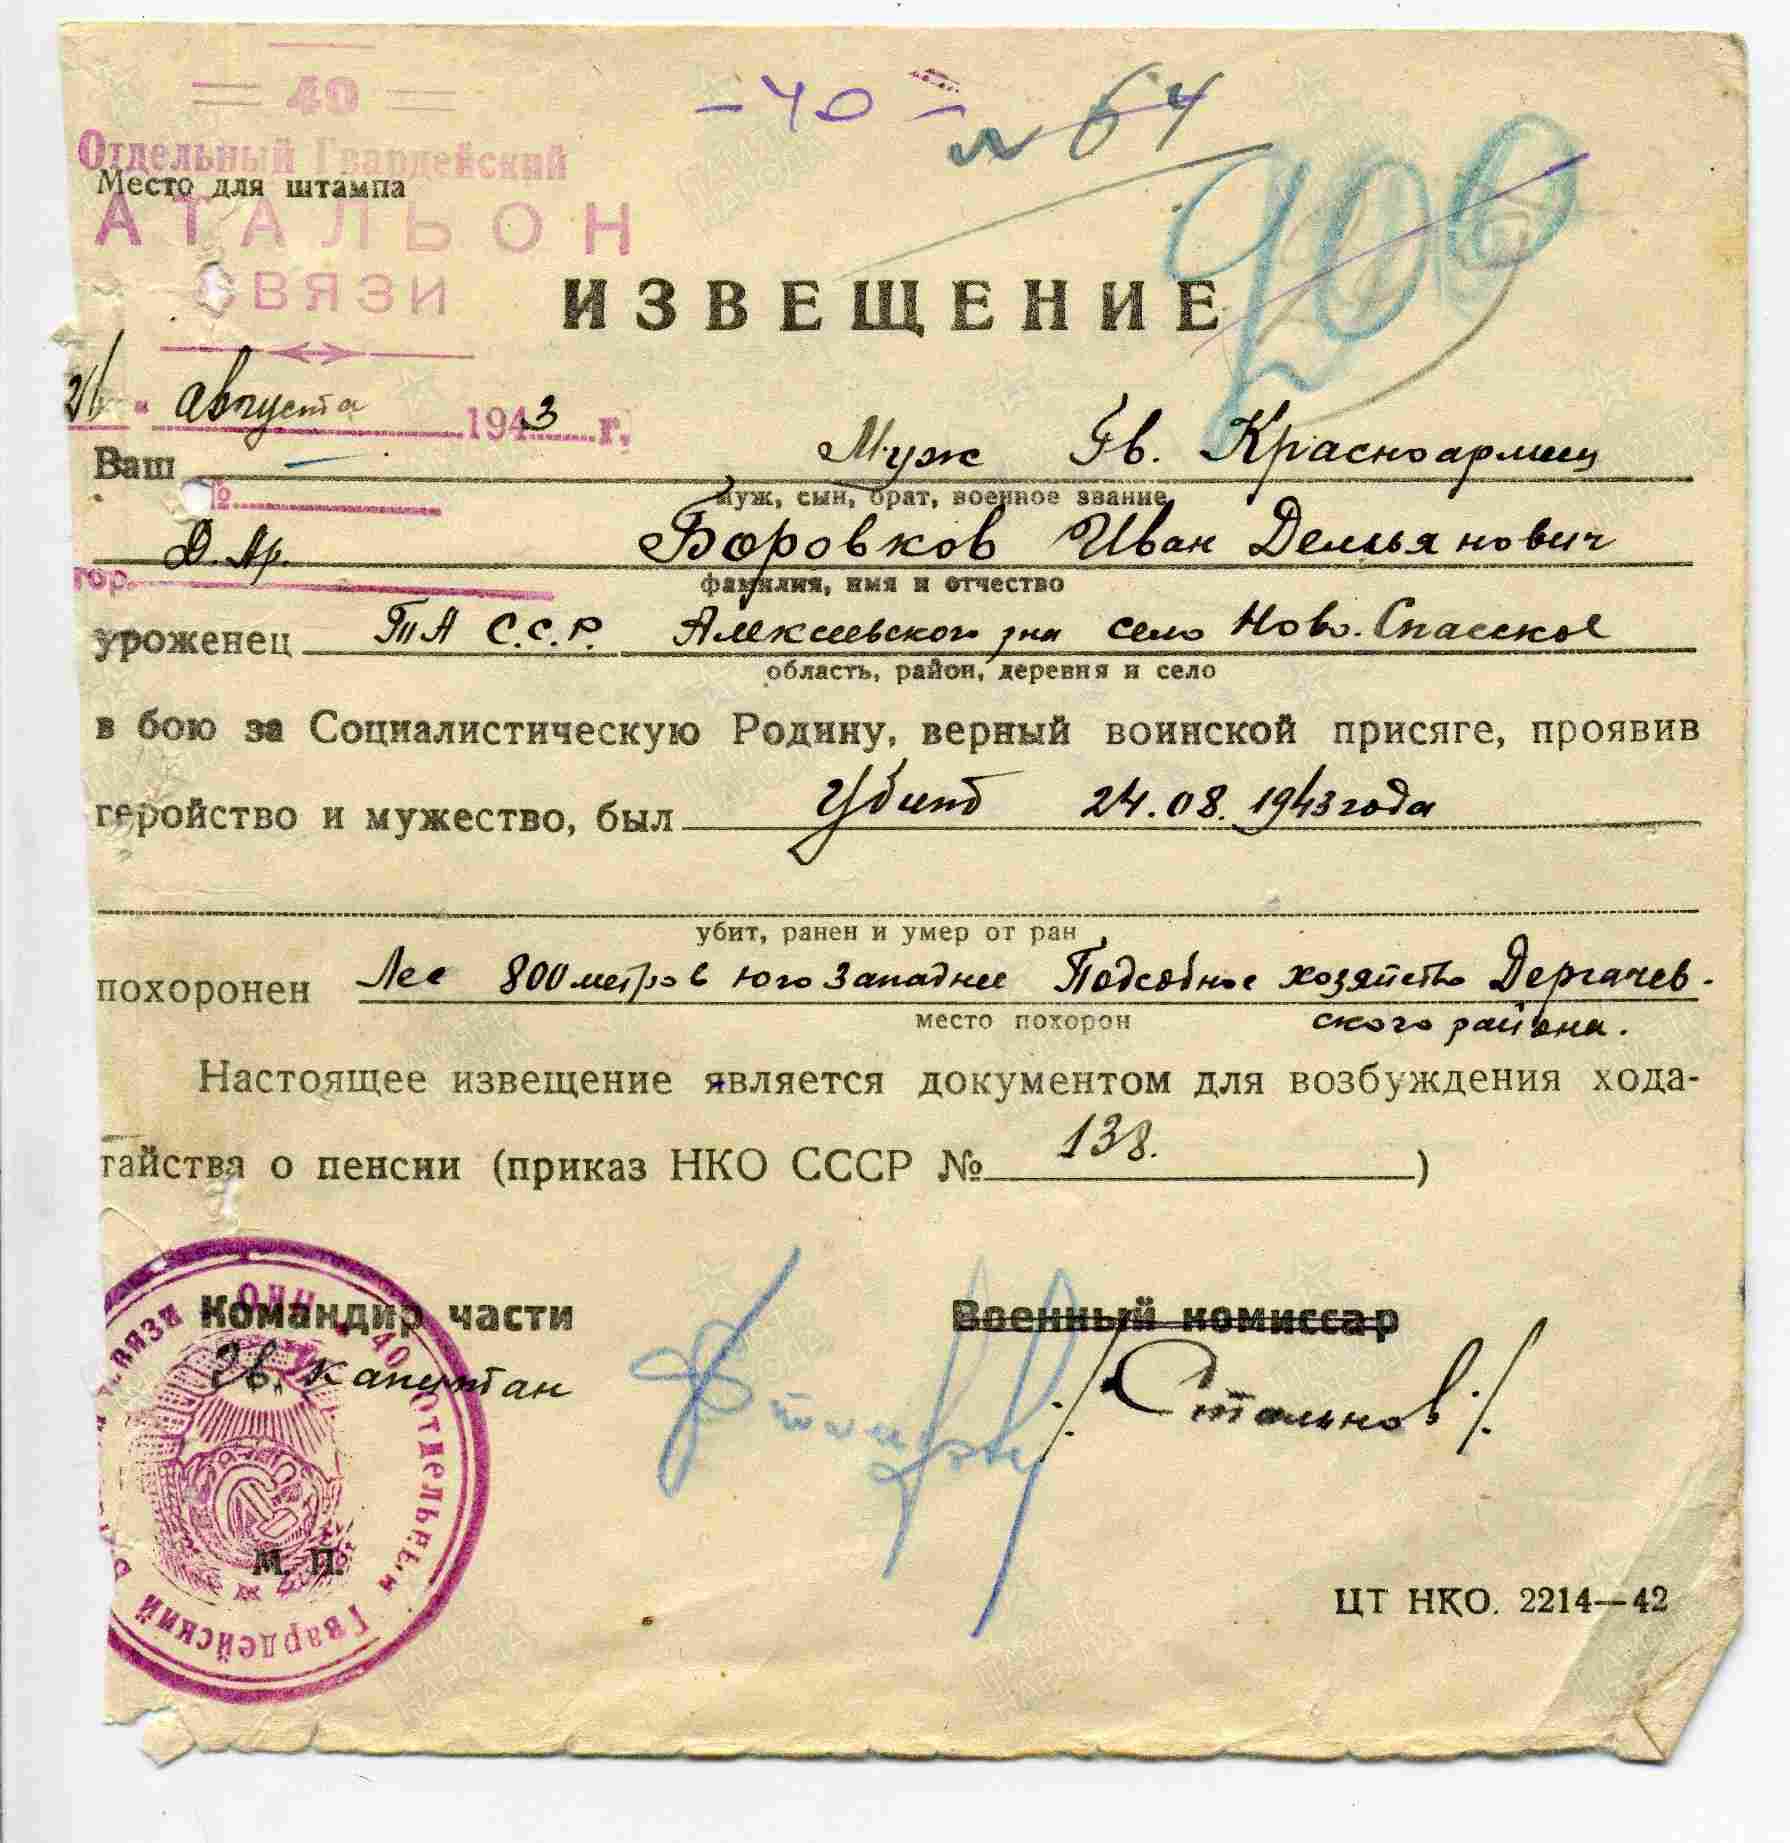 40
- 40 -
№ 64
906
Отдельный Гвардейский
Место для штампа
АТАЛЬОН
СВЯЗИ
ИЗВЕЩЕНИЕ
26 " августа 1943 г.
Ваш Муж Гв. Красноармеец
муж, сын, брат, военное звание
№
Боровков Иван Демьянович
гор.
фамилия, имя и отчество
уроженец ТА С.С.Р. Алексеевского р-на село Ново-Спасское
область, район, деревня и село
в бою за Социалистическую Родину, верный воинской присяге, проявив
геройство и мужество, был Убит 24.08.1943 года
убит, ранен и умер от ран
похоронен Лес 800 метров юго Западнее Подсобное хозяйство Дергачев-
место похорон ского района.
Настоящее извещение является документом для возбуждения хода-
тайства о пенсии (приказ НКО СССР № 138. )
Командир части Военный комиссар
Гв. капитан /Стальнов/
М. П.
40 Отдельный Гвардейский связи
ЦТ НКО. 2214—42